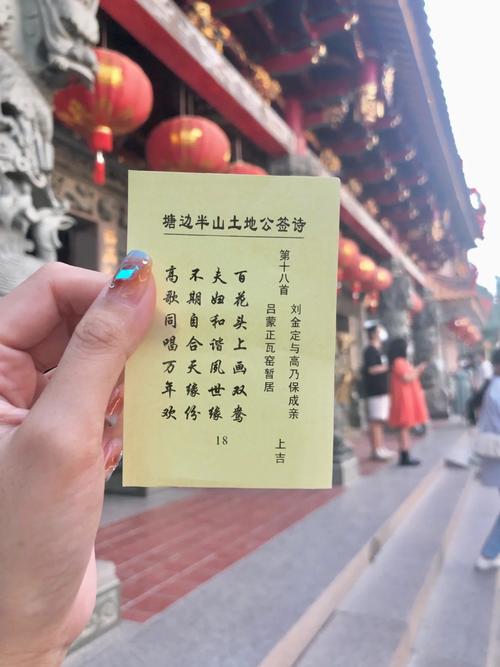 塘边半山土地公签诗
第十八首
刘金定与高乃保成亲
吕蒙正瓦窑暂居
上吉
百花头上画双鸯
夫妇和谐夙世缘
不期自合天缘份
高歌同唱万年欢
18